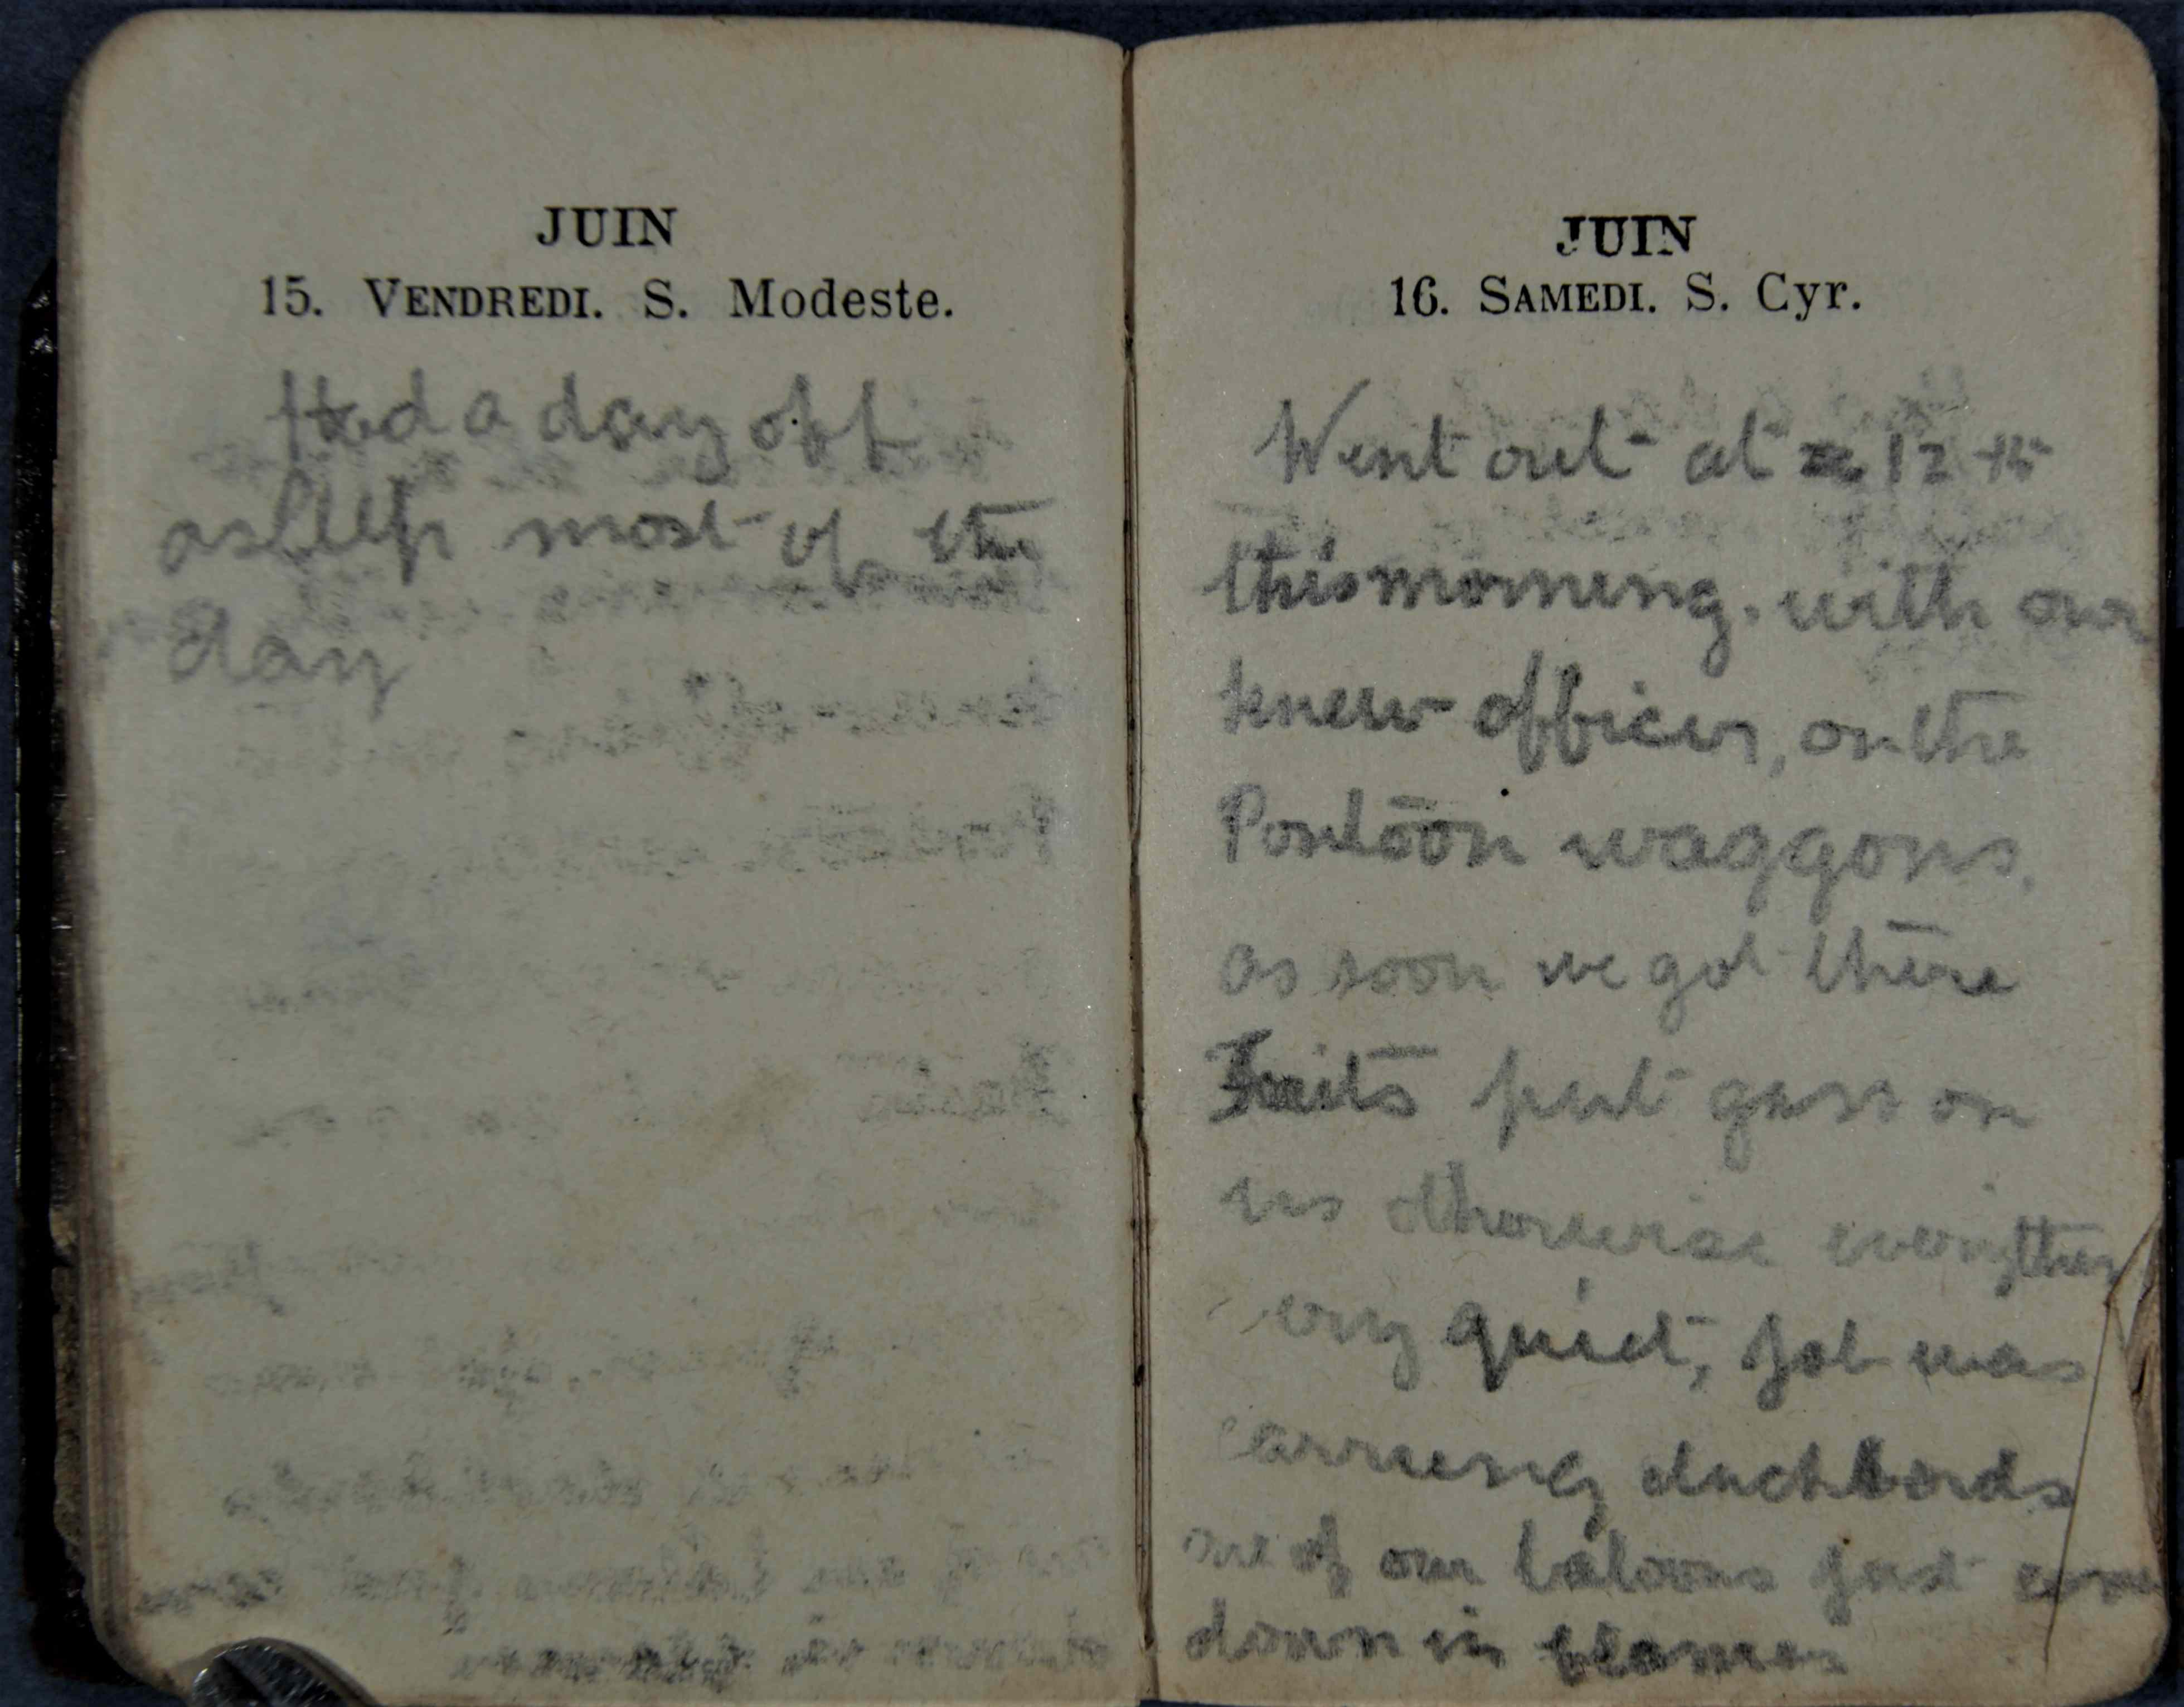 JUIN
15. VENDREDI. S. Modeste.
Had a day off
asleep most of the
day
JUIN
16. SAMEDI. S. Cyr.
Went out at 12
this morning. with our
knew officer, on the
Pontoon waggons.
as soon we got there
Fritz put gass on
us otherwise everything
very quiet, Job was
carrieng duchbords
one of our baloons just come
down in flames